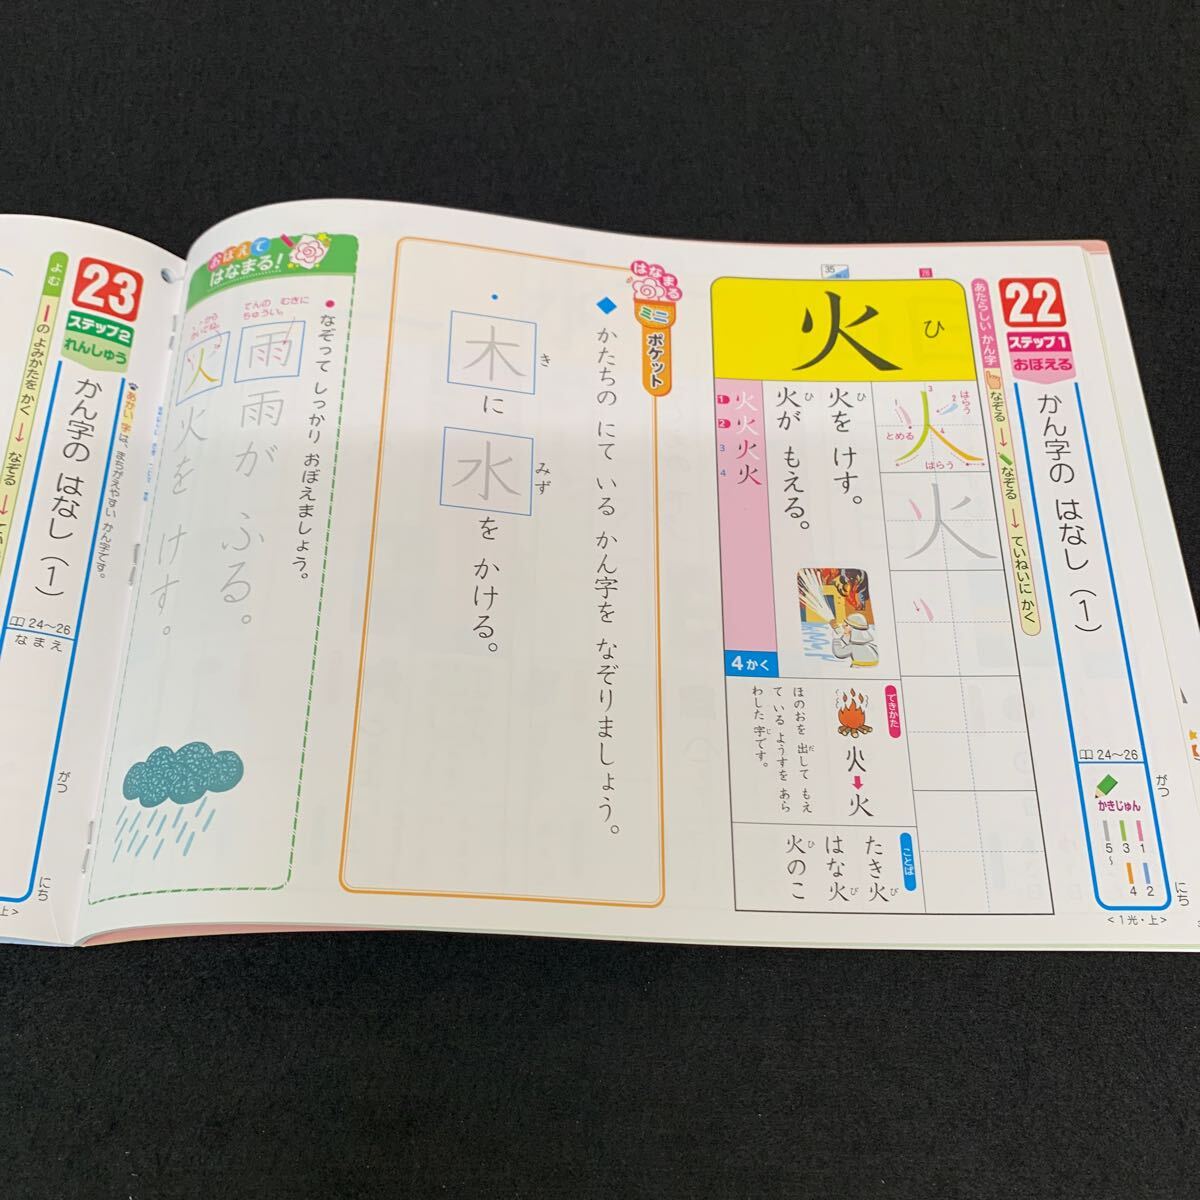 22
ステップ1
おぼえる
かん字の はなし(1)
24〜26
がつ
にち
かきじゅん
1
2
3
4
5〜
<1光・上>
あたらしい かん字
なぞる→なぞる→ていねいに かく
35
76
火
ひ
火
1
2
3
4
はらう
とめる
はらう
火
火を けす。
ひ
火が もえる。
ひ
1 火
2 火
3 火
4 火
4かく
できかた
火
火
ほのおを 出して もえ
だ
て いる ようすを あら
わした 字です。
じ
ことば
たき火
び
はな火
び
火のこ
ひ
はなまる
ミニ
ポケット
かたちの にて いる かん字を なぞりましょう。
木に水を かける。
き
みず
おぼえて
はなまる!
なぞって しっかり おぼえましょう。
てんの むきに
ちゅうい。
雨 雨が ふる。
火 火を けす。
23
ステップ2
れんしゅう
あかい 字は、まちがえやすい かん字です。
かん字の はなし(1)
24〜26
なまえ
がつ
にち
上>
よむ
のよみかたを かく→なぞる→てい